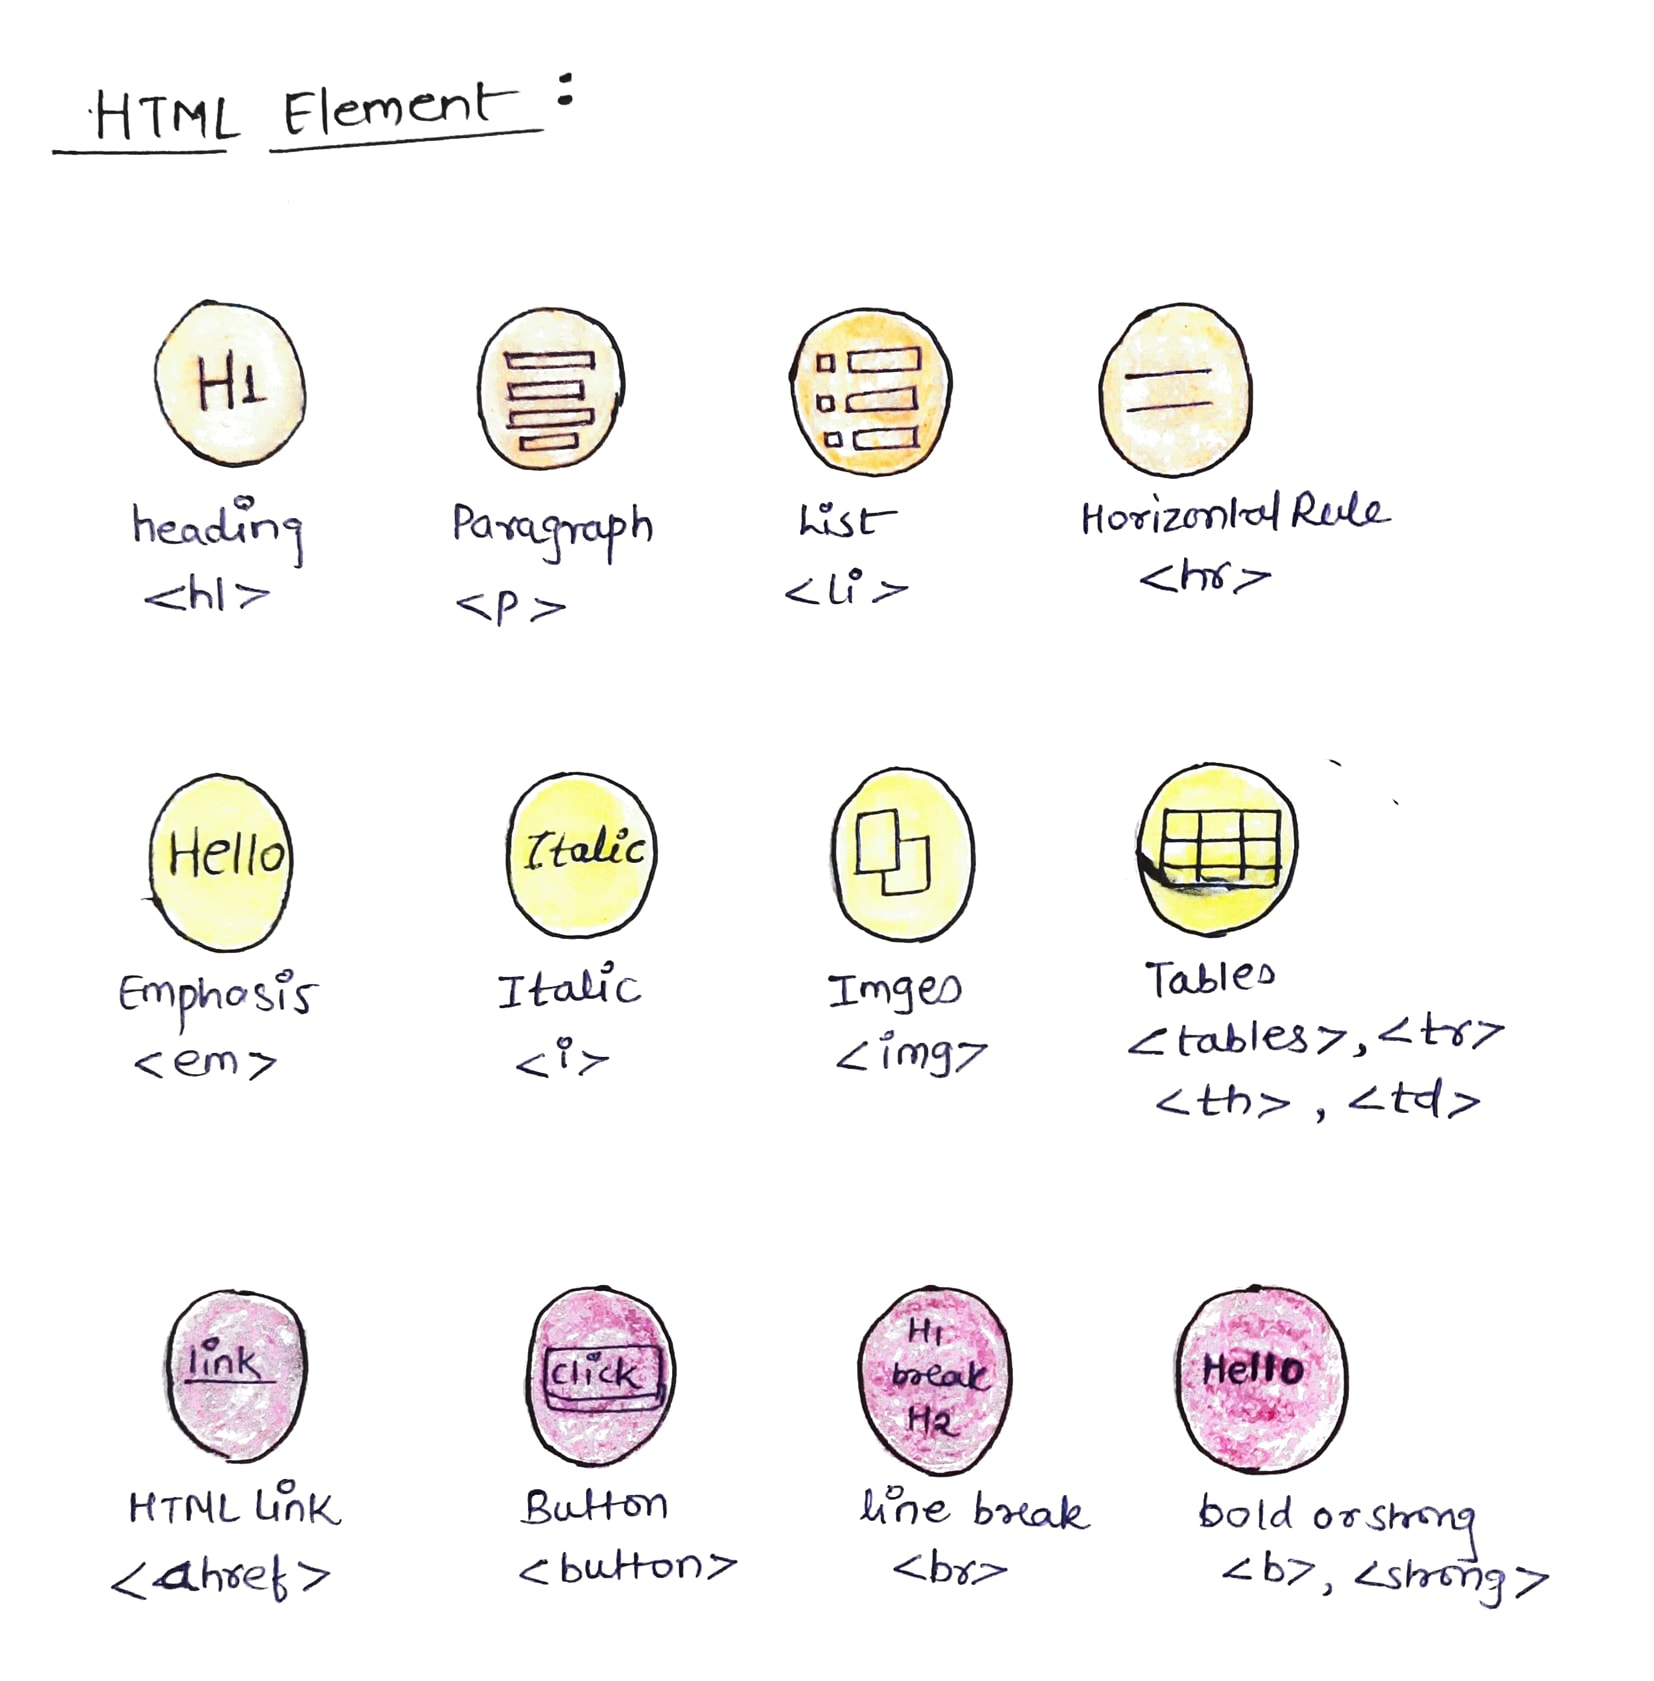 HTML Element :
H1
heading
<h1>
Paragraph
<p>
List
<li>
Horizontal Rule
<hr>
Hello
Emphasis
<em>
Italic
Italic
<i>
Imges
<img>
Tables
<tables>, <tr>
<th>, <td>
link
HTML link
<ahref>
click
Button
<button>
H1
break
H2
line break
<br>
Hello
bold or strong
<b>, <strong>